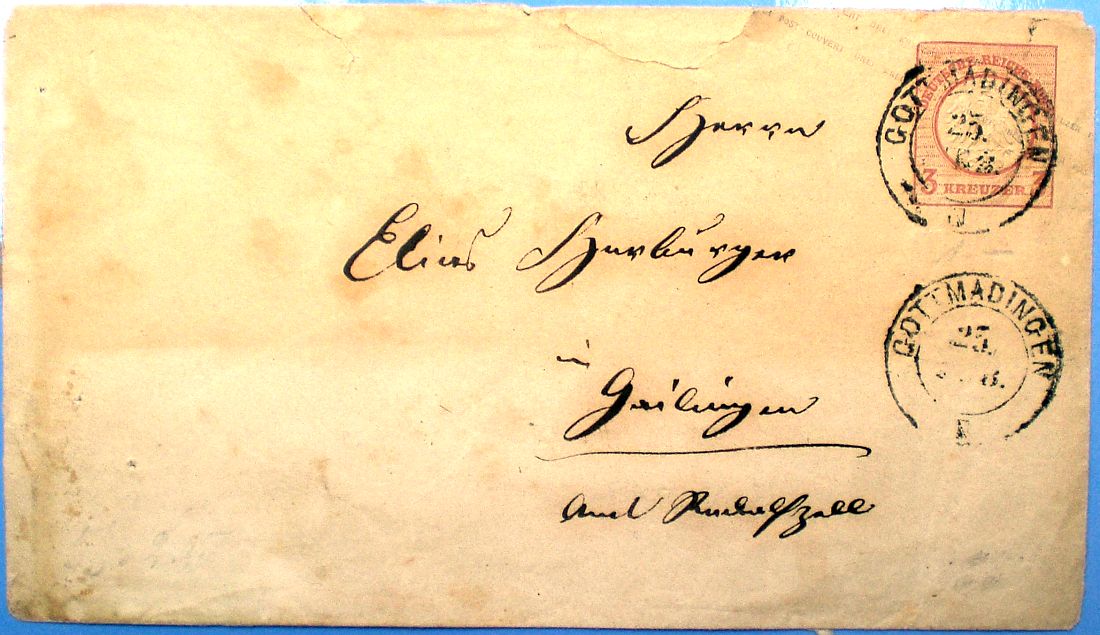 POST COUVERT
DEUTSCHE REICHS-POST
3 KREUZER 3
GOTTMADINGEN
25.
Herrn
Elias Harburger
in
Gailingen
Amt Radolfzell
GOTTMADINGEN
25.